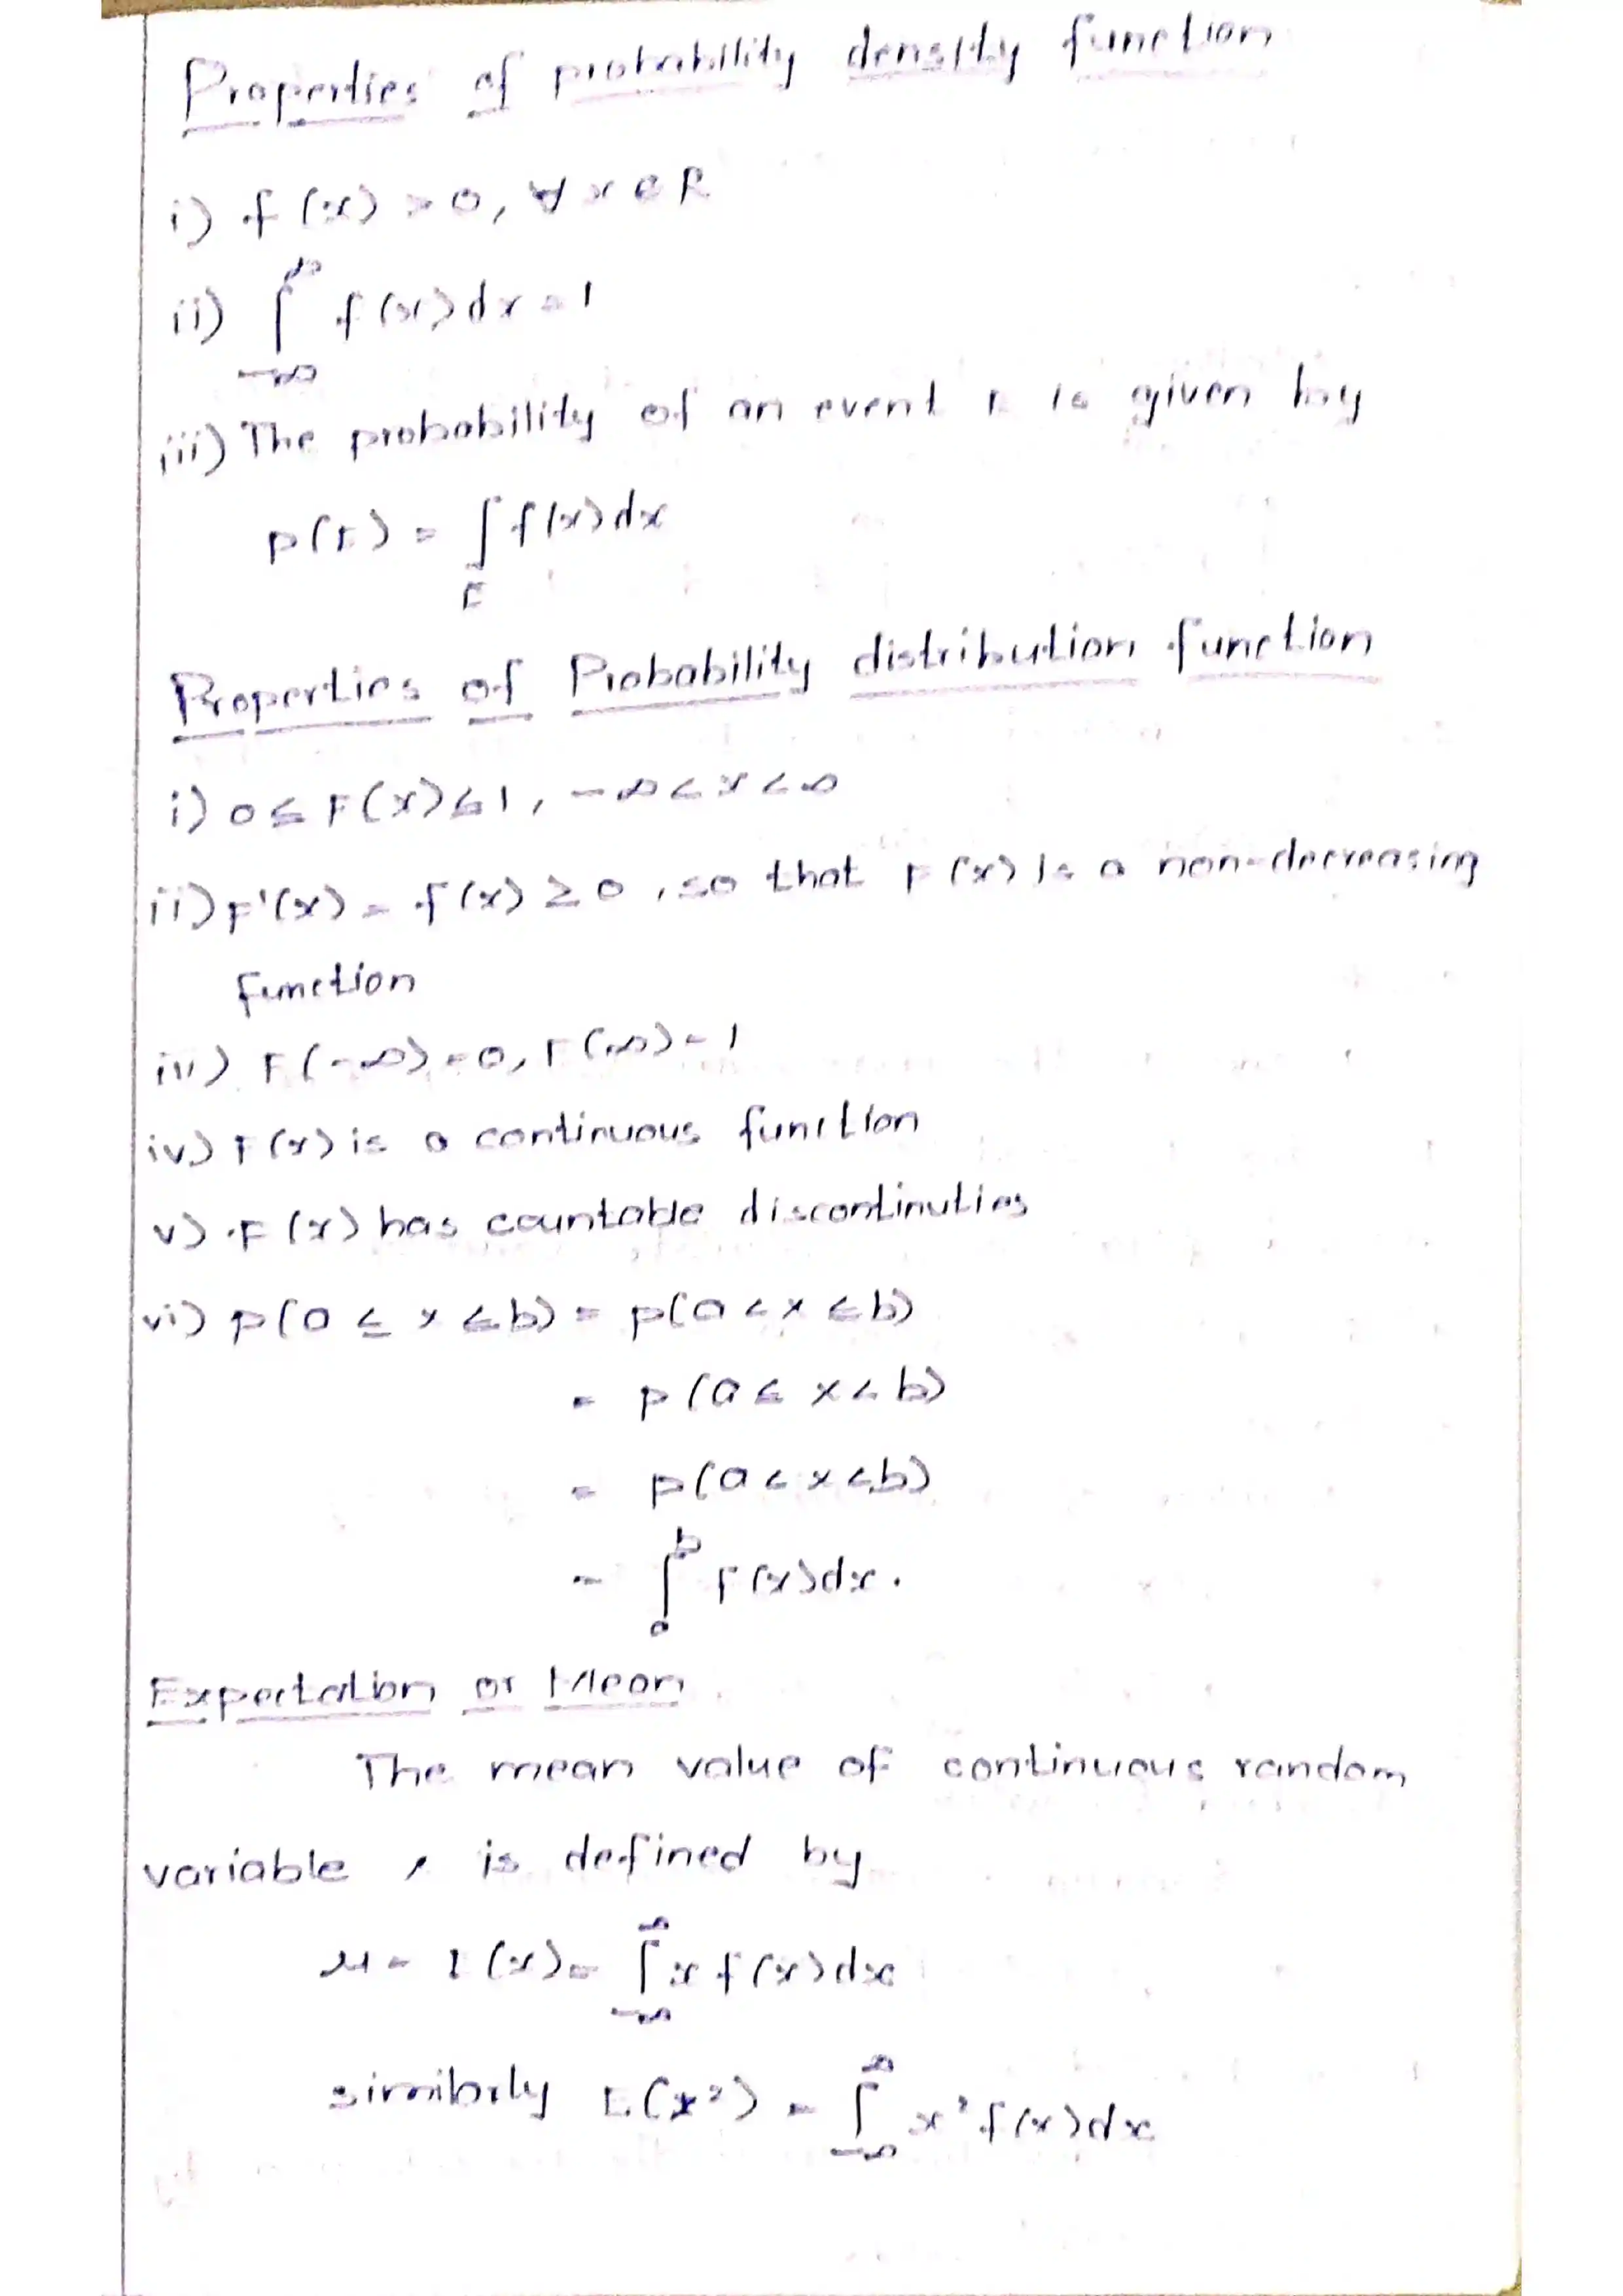 Properties of probability density function
i) f(x) > 0, ∀ x ∈ R
ii) ∫_{-∞}^{∞} f(x) dx = 1
iii) The probability of an event E is given by
p(E) = ∫_E f(x) dx
Properties of Probability distribution function
i) 0 ≤ F(x) ≤ 1, -∞ < x < ∞
ii) F'(x) = f(x) ≥ 0, so that F(x) is a non-decreasing
function
iii) F(-∞) = 0, F(∞) = 1
iv) F(x) is a continuous function
v) F(x) has countable discontinuties
vi) p(a ≤ x ≤ b) = p(a < x ≤ b)
= p(a ≤ x < b)
= p(a < x < b)
= ∫_a^b F(x) dx.
Expectation or Mean
The mean value of continuous random
variable x is defined by
μ = E(x) = ∫_{-∞}^{∞} x f(x) dx
similarly E(x²) = ∫_{-∞}^{∞} x² f(x) dx